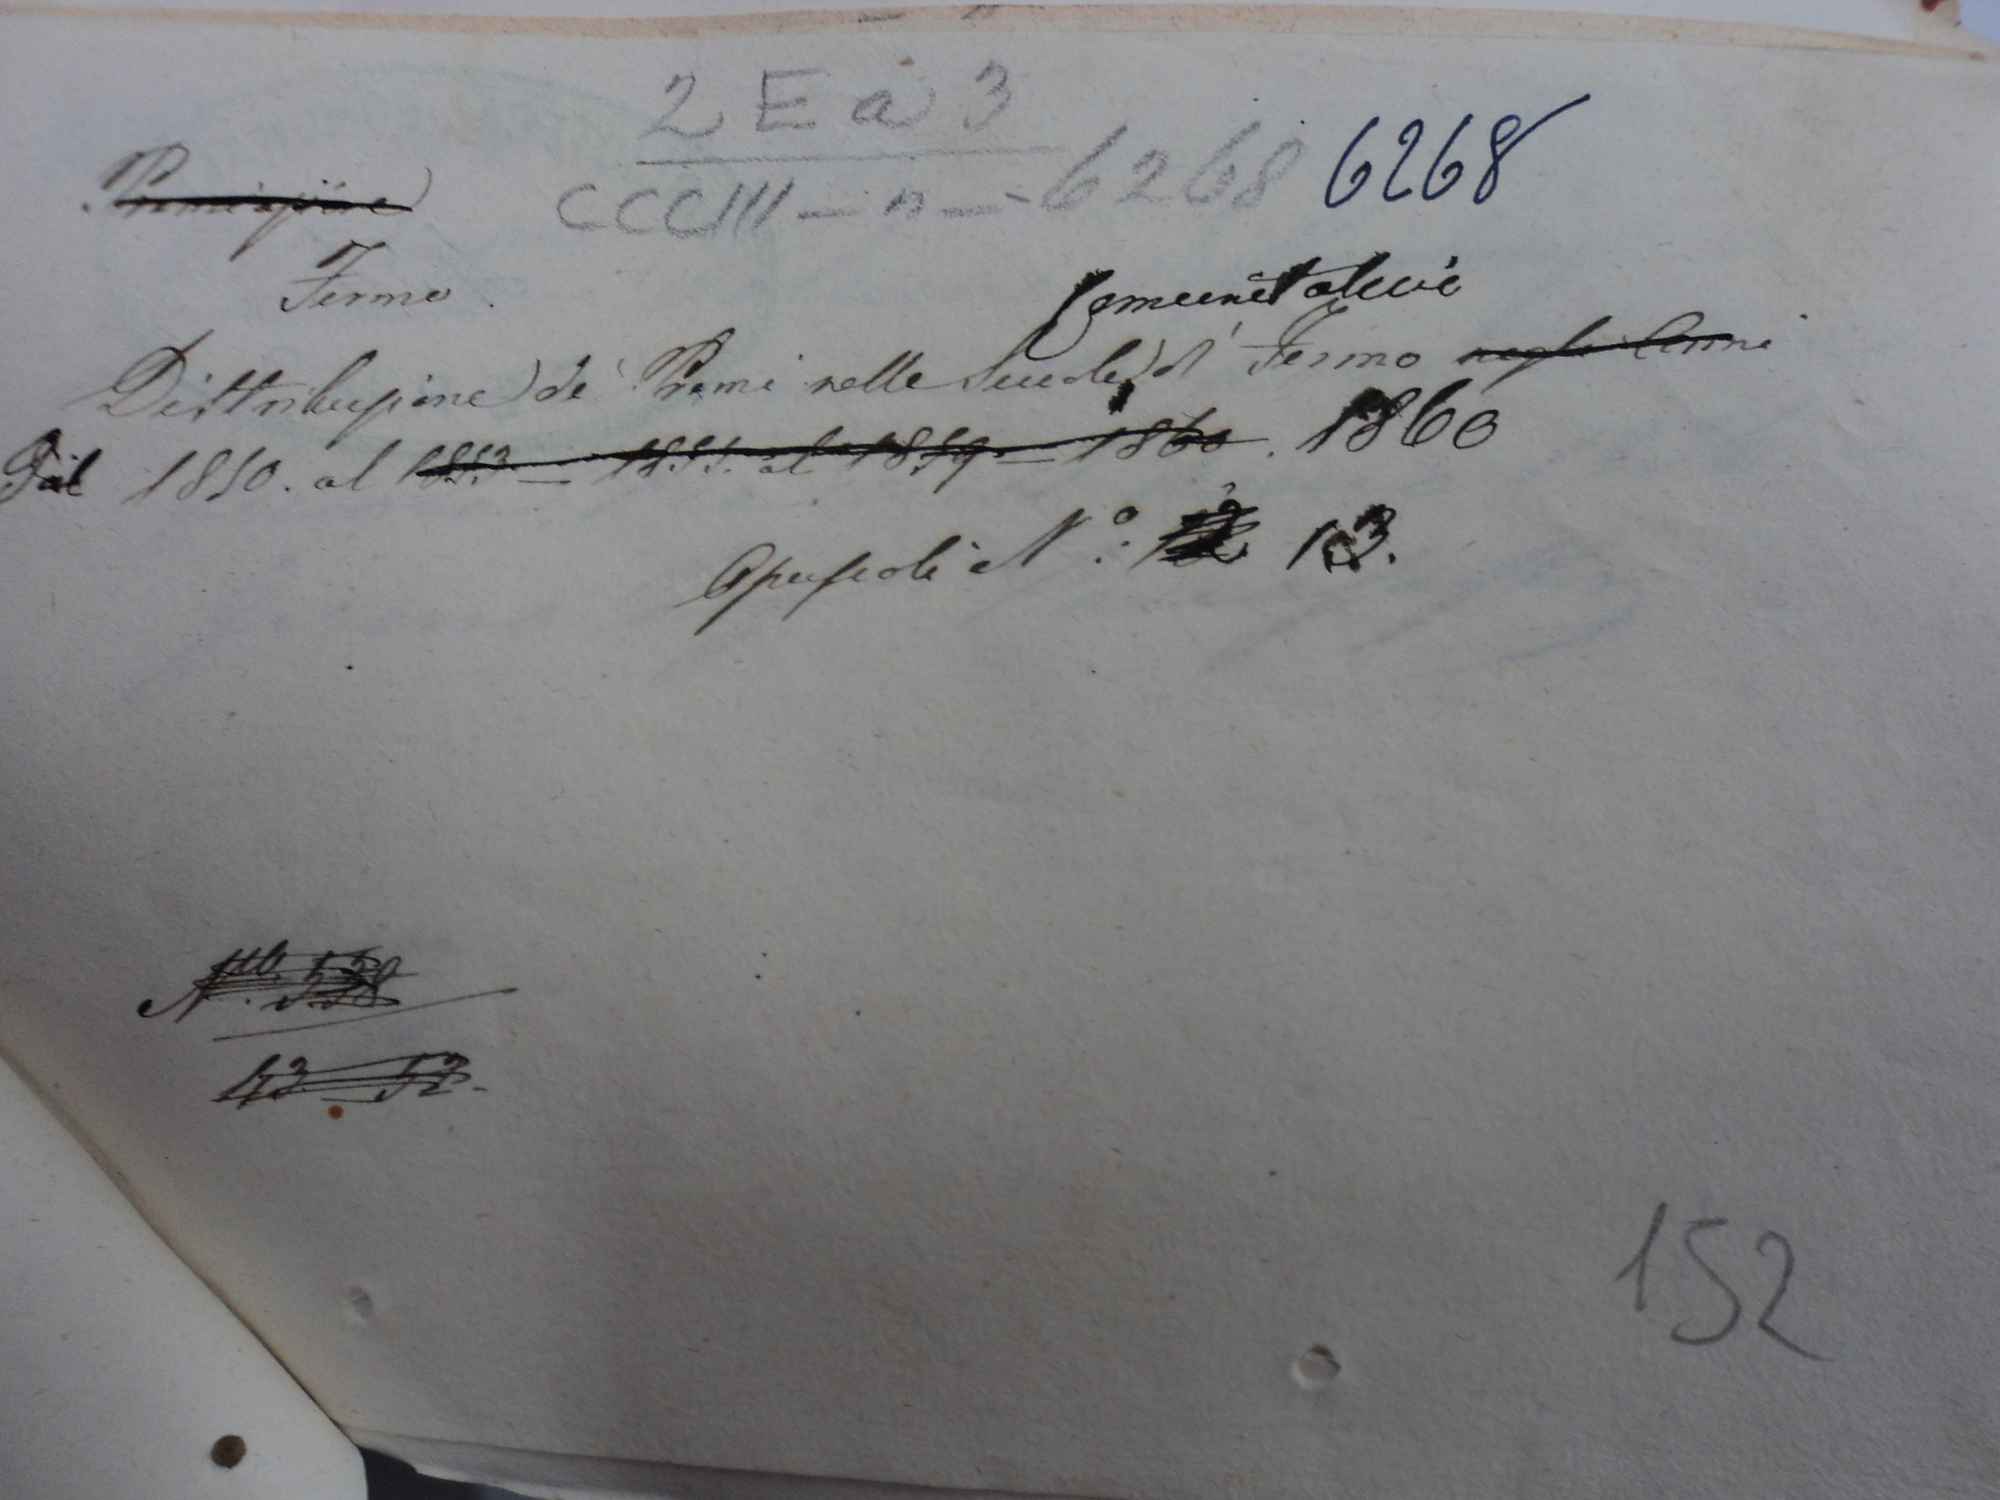 2 E a 3
CCCIII — n — 6268 6268
Premiazione
Fermo.
Comunitative
Distribuzione de' Premi nelle Scuole di Fermo negli Anni
Dal 1850. al 1853 — 1855. al 1859 — 1860. 1860
Opuscoli N.º 13.
N. 538
43 52.
152